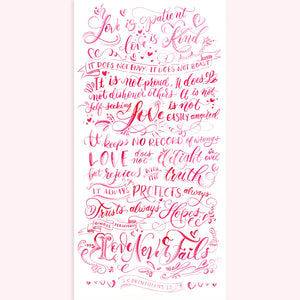 Love is patient
love is kind
IT DOES NOT ENVY, IT DOES NOT BOAST
It is not proud. It does
not dishonor others. It is not
self-seeking Love is not easily angered
It keeps NO RECORD of wrongs
LOVE does not delight in evil
but rejoices WITH THE truth
IT ALWAYS PROTECTS always
Trusts, always Hopes
ALWAYS PERSEVERES
Love Never Fails
1 CORINTHIANS 13